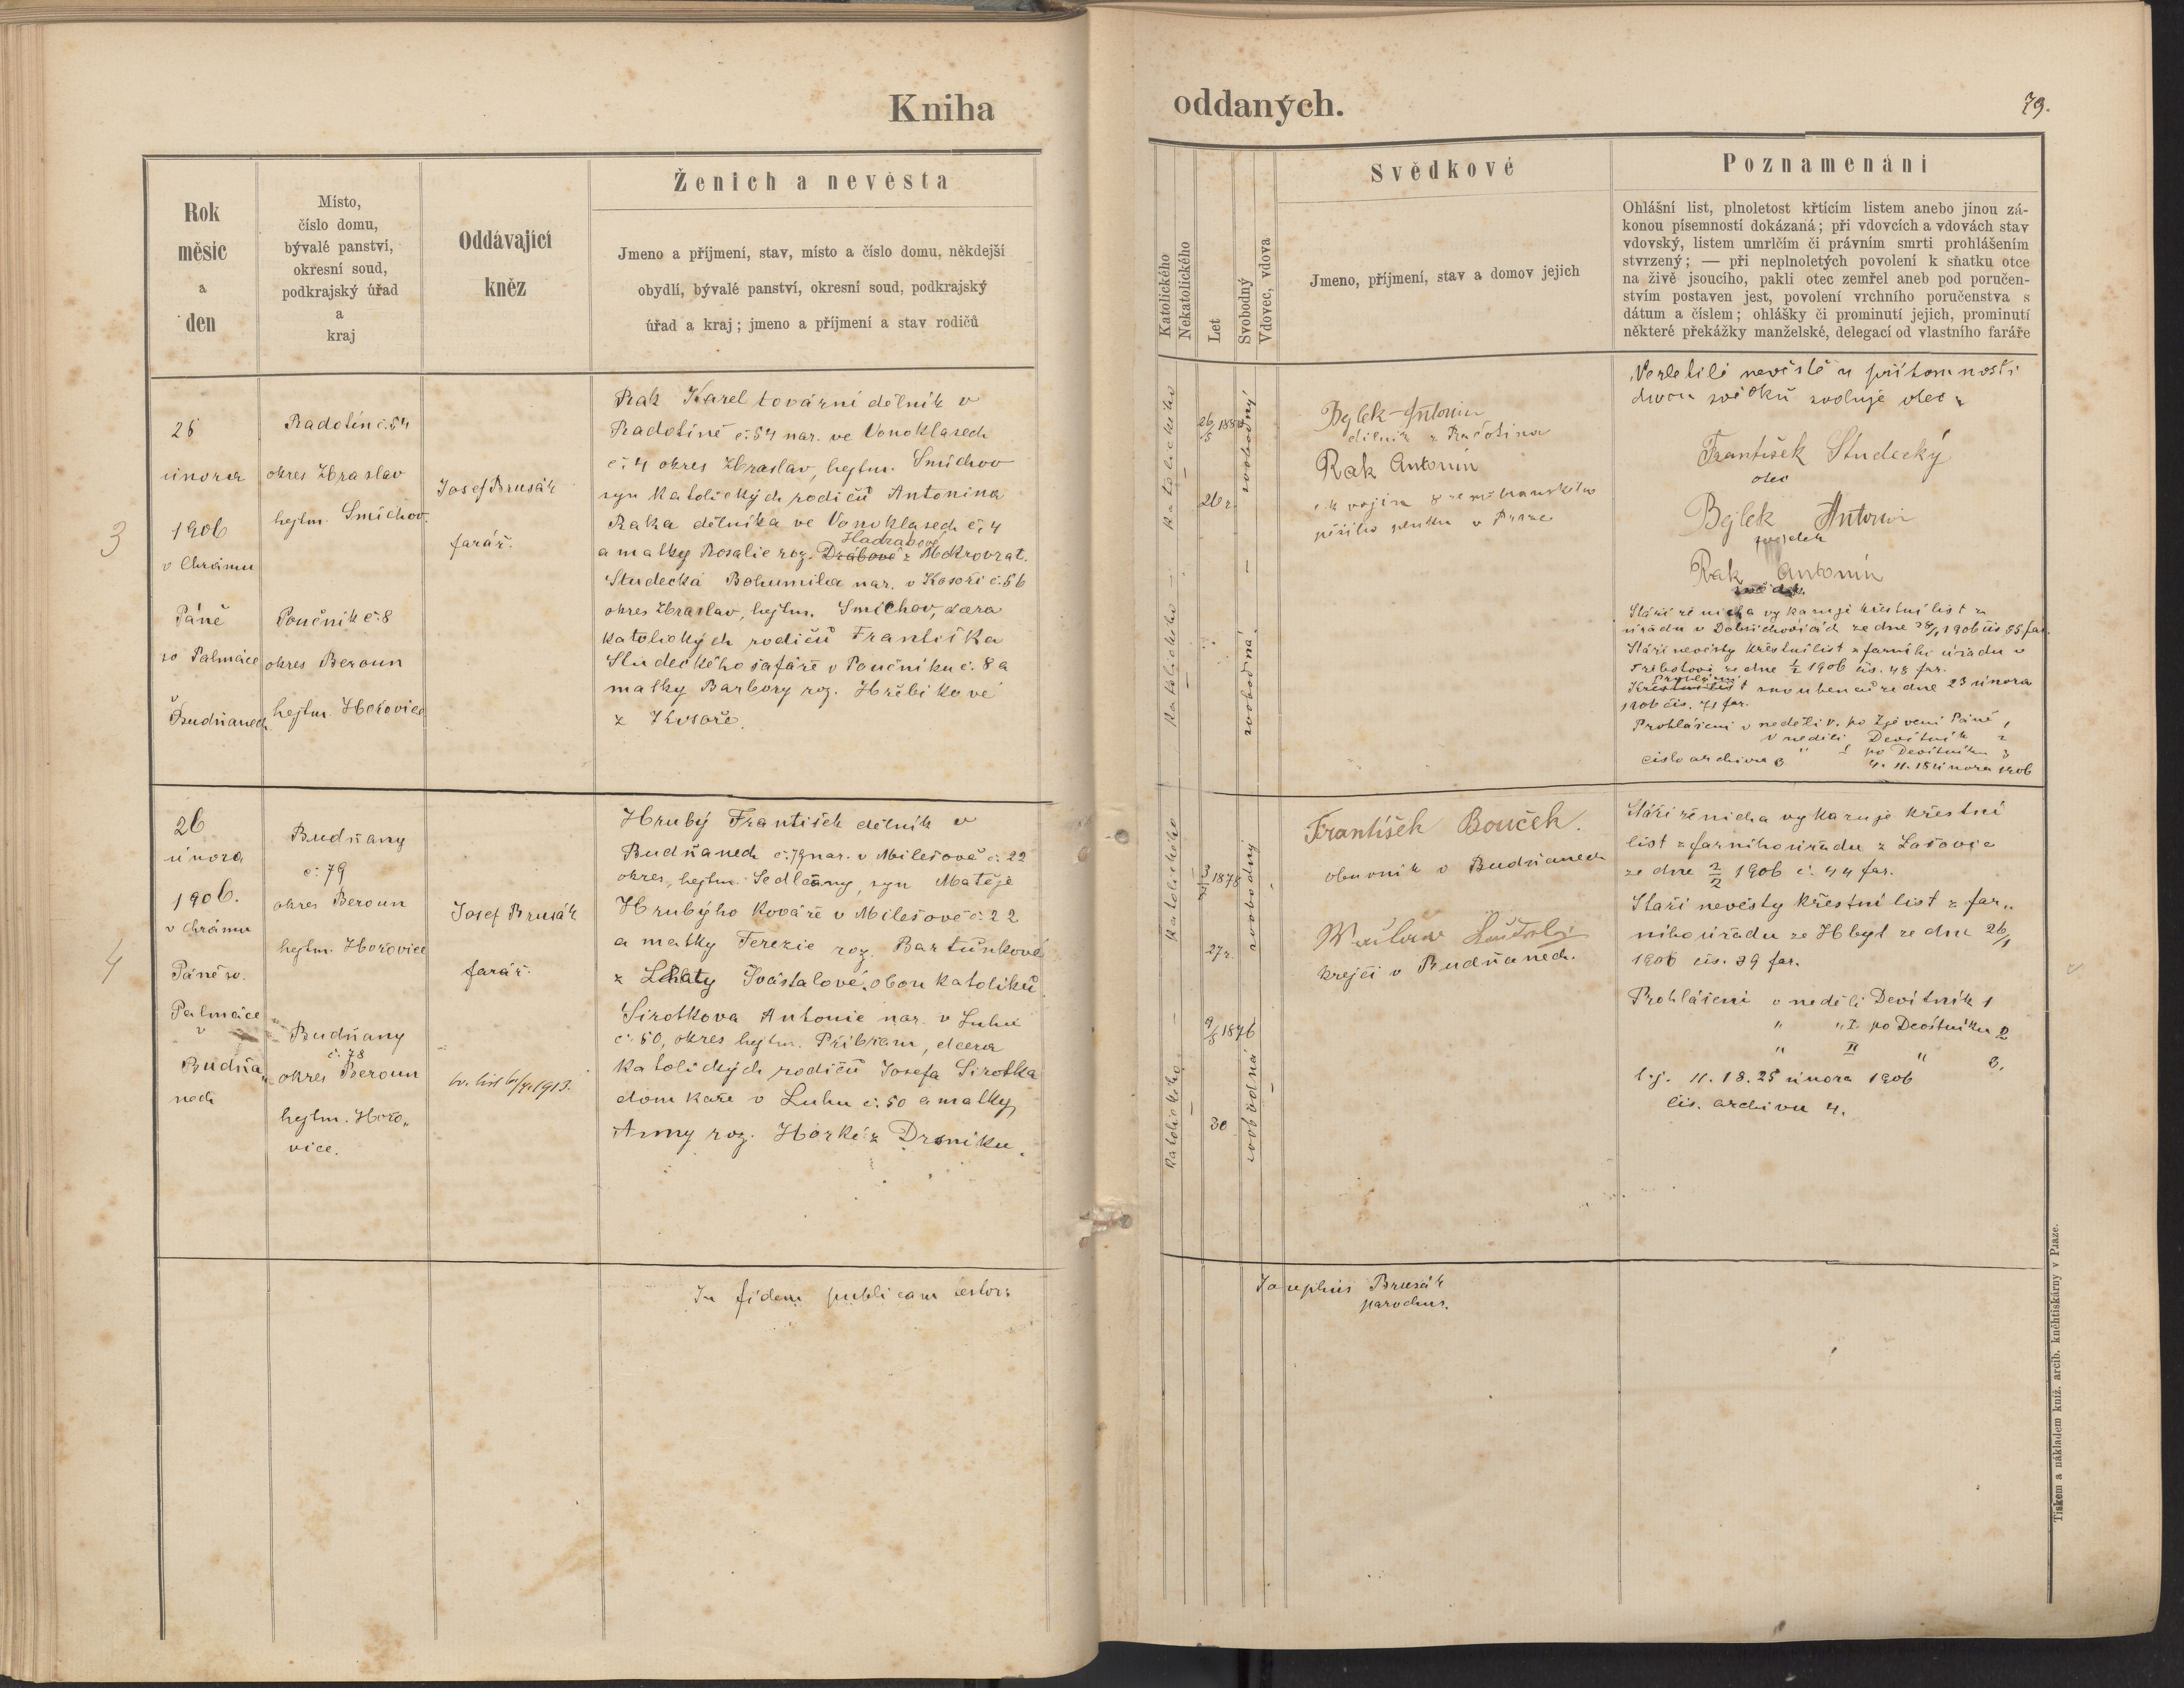 Kniha
oddaných.
79.
Rok
měsíc
a
den
Místo,
číslo domu,
bývalé panství,
okresní soud,
podkrajský úřad
a
kraj
Oddávající
kněz
Ženich a nevěsta
Jmeno a příjmení, stav, místo a číslo domu, někdejší
obydlí, bývalé panství, okresní soud, podkrajský
úřad a kraj; jmeno a příjmení a stav rodičů
Katolického
Nekatolického
Let
Svobodný
Vdovec, vdova
Svědkové
Jmeno, příjmení, stav a domov jejich
Poznamenání
Ohlášní list, plnoletost křtícím listem anebo jinou zá-
konou písemností dokázaná; při vdovcích a vdovách stav
vdovský, listem umrlčím či právním smrti prohlášením
stvrzený; — při neplnoletých povolení k sňatku otce
na živě jsoucího, pakli otec zemřel aneb pod poručen-
stvím postaven jest, povolení vrchního poručenstva s
dátum a číslem; ohlášky či prominutí jejich, prominutí
některé překážky manželské, delegací od vlastního faráře
3
února
1906
v Chrámu
Páně
sv Palmácе
Budňanech
Radotín č. 54
okres Zbraslav
hejtm. Smíchov.
Poučník č. 8
okres Beroun
hejtm. Hořovice
Josef Brusák
farář.
Rak Karel tovární dělník v
Radotíně č. 54 nar. ve Vonoklasech
č. 4 okres Zbraslav, hejtm. Smíchov
syn katolických rodičů Antonína
Raka dělníka ve Vonoklasech č. 4
Hadrabové
a matky Rosalie roz. Drábové z Mokrovrat.
Studecká Bohumila nar. v Kosoři č. 56
okres Zbraslav, hejtm. Smíchov, dcera
katolických rodičů Františka
Studeckého šafáře v Poučníku č. 8 a
matky Barbory roz. Hřebíkové
z Kosoře.
katolického
26/5
26 r.
svobodný
katolického
svobodná
Bejlek Antonín
dělník z Radotína
Rak Antonín
pěšího pluku v Praze
Nezletilé nevěstě u přítomnosti
dvou svědků svoluje otec:
František Studecký
otec
Bejlek Antonín
svědek
Rak Antonín
svědek
Stáří ženicha vykazuje křestní list z
úřadu v Dobřichovicích ze dne 28/1 1906 čís 55 far.
Stáří nevěsty křestní list z farního úřadu v
Třebotově ze dne 1/2 1906 čís. 48 far.
Křestní list snoubenců ze dne 23 února
1906 čís. 71 far.
Prohlášeni v neděli V. po Zjevení Páně 1
v neděli Devítník 2
" I po Devítníku 3
číslo archivu 3 4. 11. 18 února 1906
4
26
února
1906.
v chrámu
Páně sv.
Palmáce
v
Budňa„
nech
Budňany
č. 79
okres Beroun
hejtm. Hořovice
Budňany
č. 78
okres Beroun
hejtm. Hořo„
vice.
Josef Brusák
farář.
Hrubý František dělník v
Budňanech č. 79 nar. v Milešově č. 22
okres, hejtm. Sedlčany, syn Matěje
Hrubýho kováře v Milešově č. 22
a matky Terezie roz. Bartůňkové
z Lhoty Svástalové, obou katolíků.
Sirotkova Antonie nar. v Luhu
č. 50, okres hejtm. Příbram, dcera
katolických rodičů Josefa Sirotka
domkaře v Luhu č. 50 a matky
Anny roz. Horké z Drsníku.
katolického
1878
27 r.
svobodný
katolického
9/5 1876
30
svobodná
František Bouček.
obuvník v Budňanech
krejčí v Budňanech.
Stáří ženicha vykazuje křestní
list z farního úřadu z Lašovic
ze dne 2/2 1906 č. 44 far.
Staří nevěsty křestní list z far„
ního úřadu ze Hbyt ze dne 26/1
1906 čís. 39 far.
Prohlášeni v neděli Devítník 1
" " I. po Devítníku 2
" II " 3.
t. j. 11. 18. 25 února 1906
čís. archivu 4.
In fidem publicam testor:
Josephus Brusák
parochus.
Tiskem a nákladem kníž. arcib. kněhtiskárny v Praze.